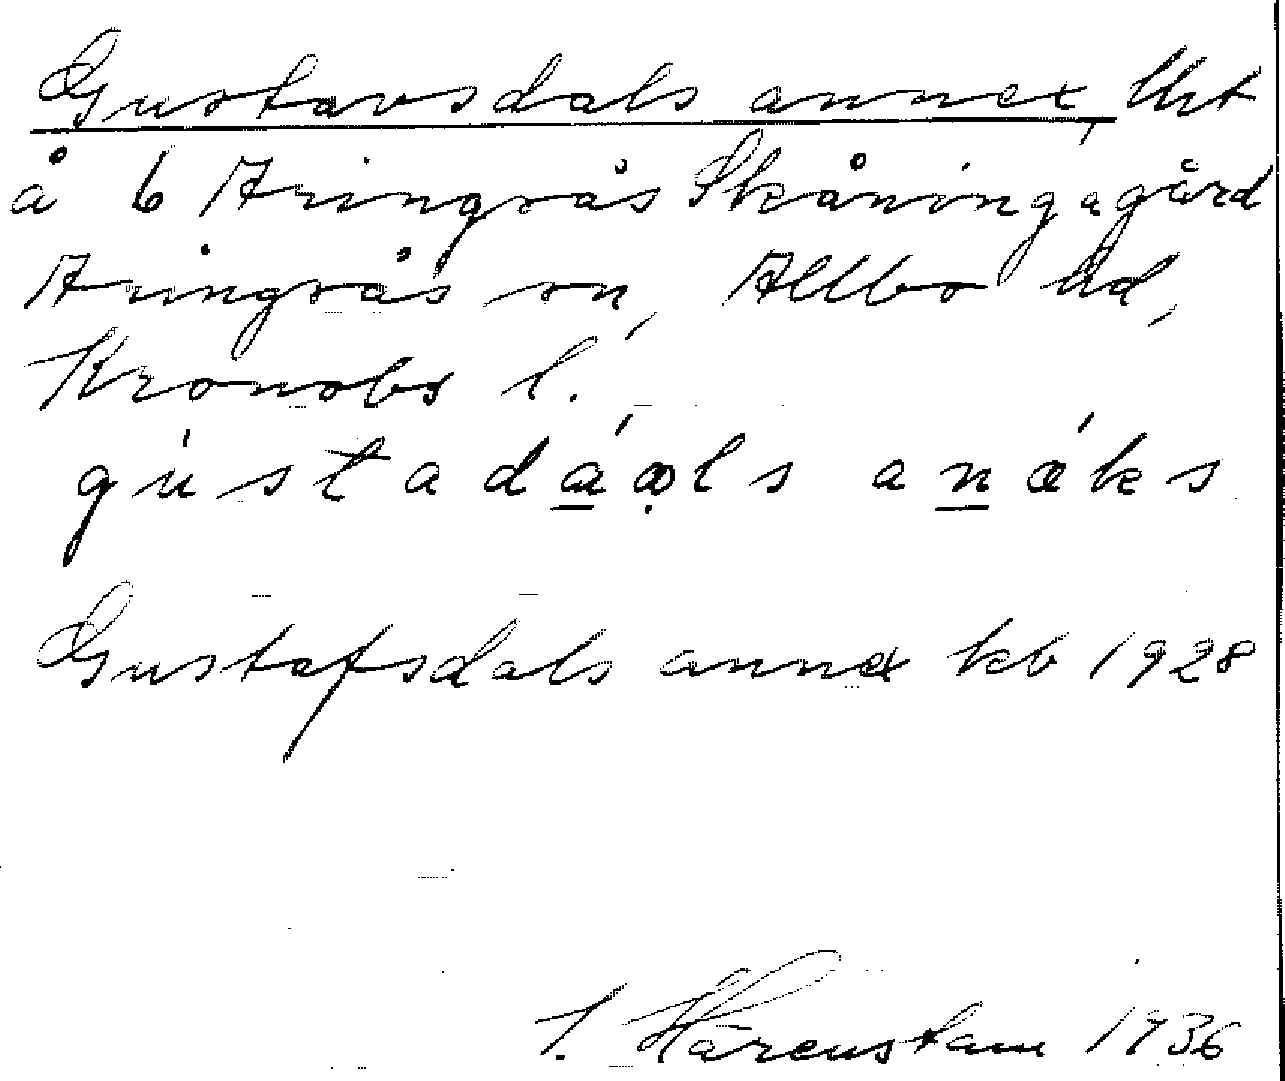 Gustavsdals annex, lht
å 6 Aringsås Skåningagård
Aringsås sn, Allbo hd,
Kronobs l.
gústadáαls anǽks
Gustafsdals annex kb 1928
Härenstam 1936